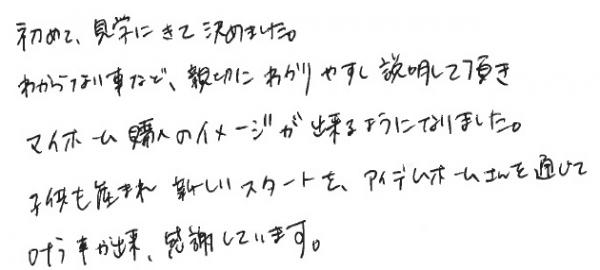 初めて、見学にきて決めました。
わからない事など、親切にわかりやすし説明して頂き
マイホーム購入のイメージが出来るようになりました。
子供も産まれ新しいスタートを、アイデムホームさんを通じて
叶う事が出来、感謝しています。